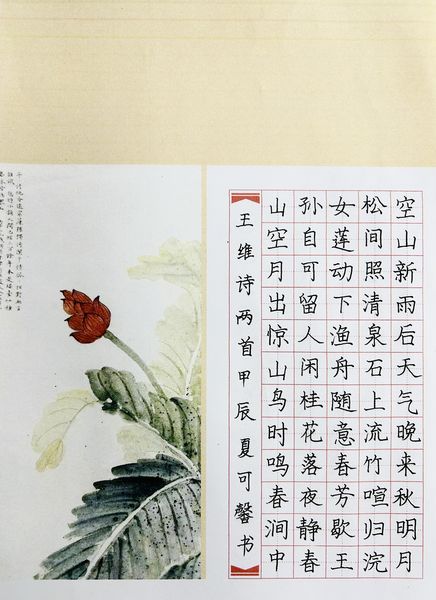 空山新雨后天气晚来秋明月
松间照清泉石上流竹喧归浣
女莲动下渔舟随意春芳歇王
孙自可留人闲桂花落夜静春
山空月出惊山鸟时鸣春涧中
王维诗两首甲辰夏可馨书